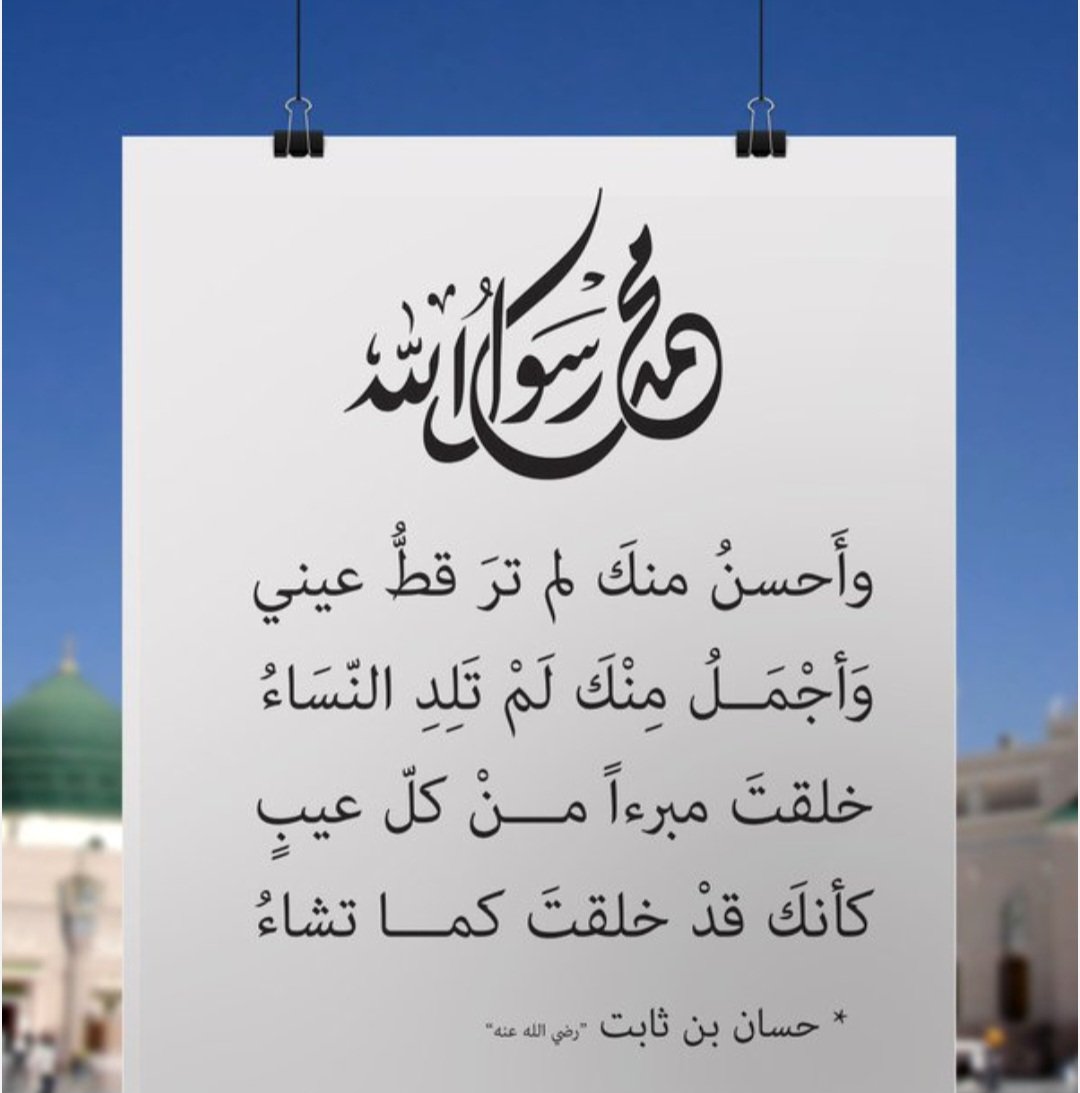 محمد رسول الله
وأَحسنُ منكَ لم ترَ قطُّ عيني
وَأجْمَــلُ مِنْكَ لَمْ تَلِدِ النّسَاءُ
خلقتَ مبرءاً مـــنْ كلّ عيبٍ
كأنكَ قدْ خلقتَ كمـــا تشاءُ
* حسان بن ثابت "رضي الله عنه"